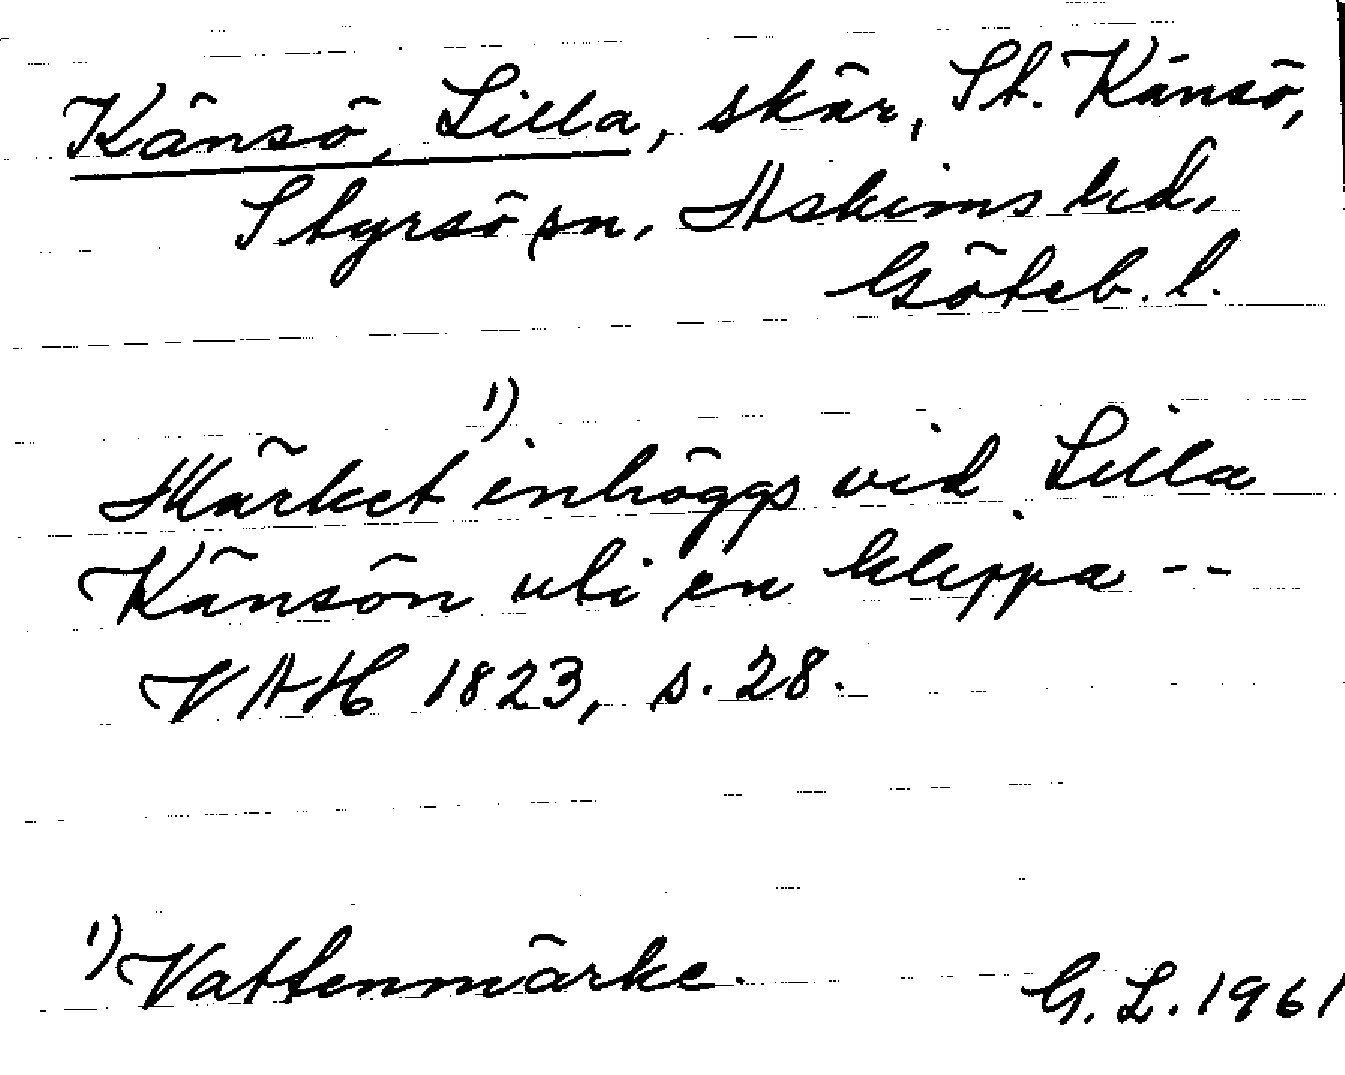 Känsö, Lilla, skär, St. Känsö,
Styrsö sn, Askims hd,
Göteb. l.
1)
Märket inhöggs vid Lilla
Känsön uti en klippa --
VAH 1823, s. 28.
1) Vattenmärke.
G. L. 1961